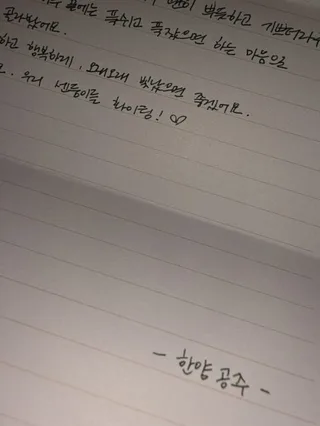 뿌듯하고 기쁘더라구
끝에는 푹쉬고 푹잤으면 하는 마음으로
골라봤어요.
하고 행복하게, 오래오래 빛났으면 좋겠어요.
요. 우리 센둥이들 화이팅! ♡
- 한양 공주 -